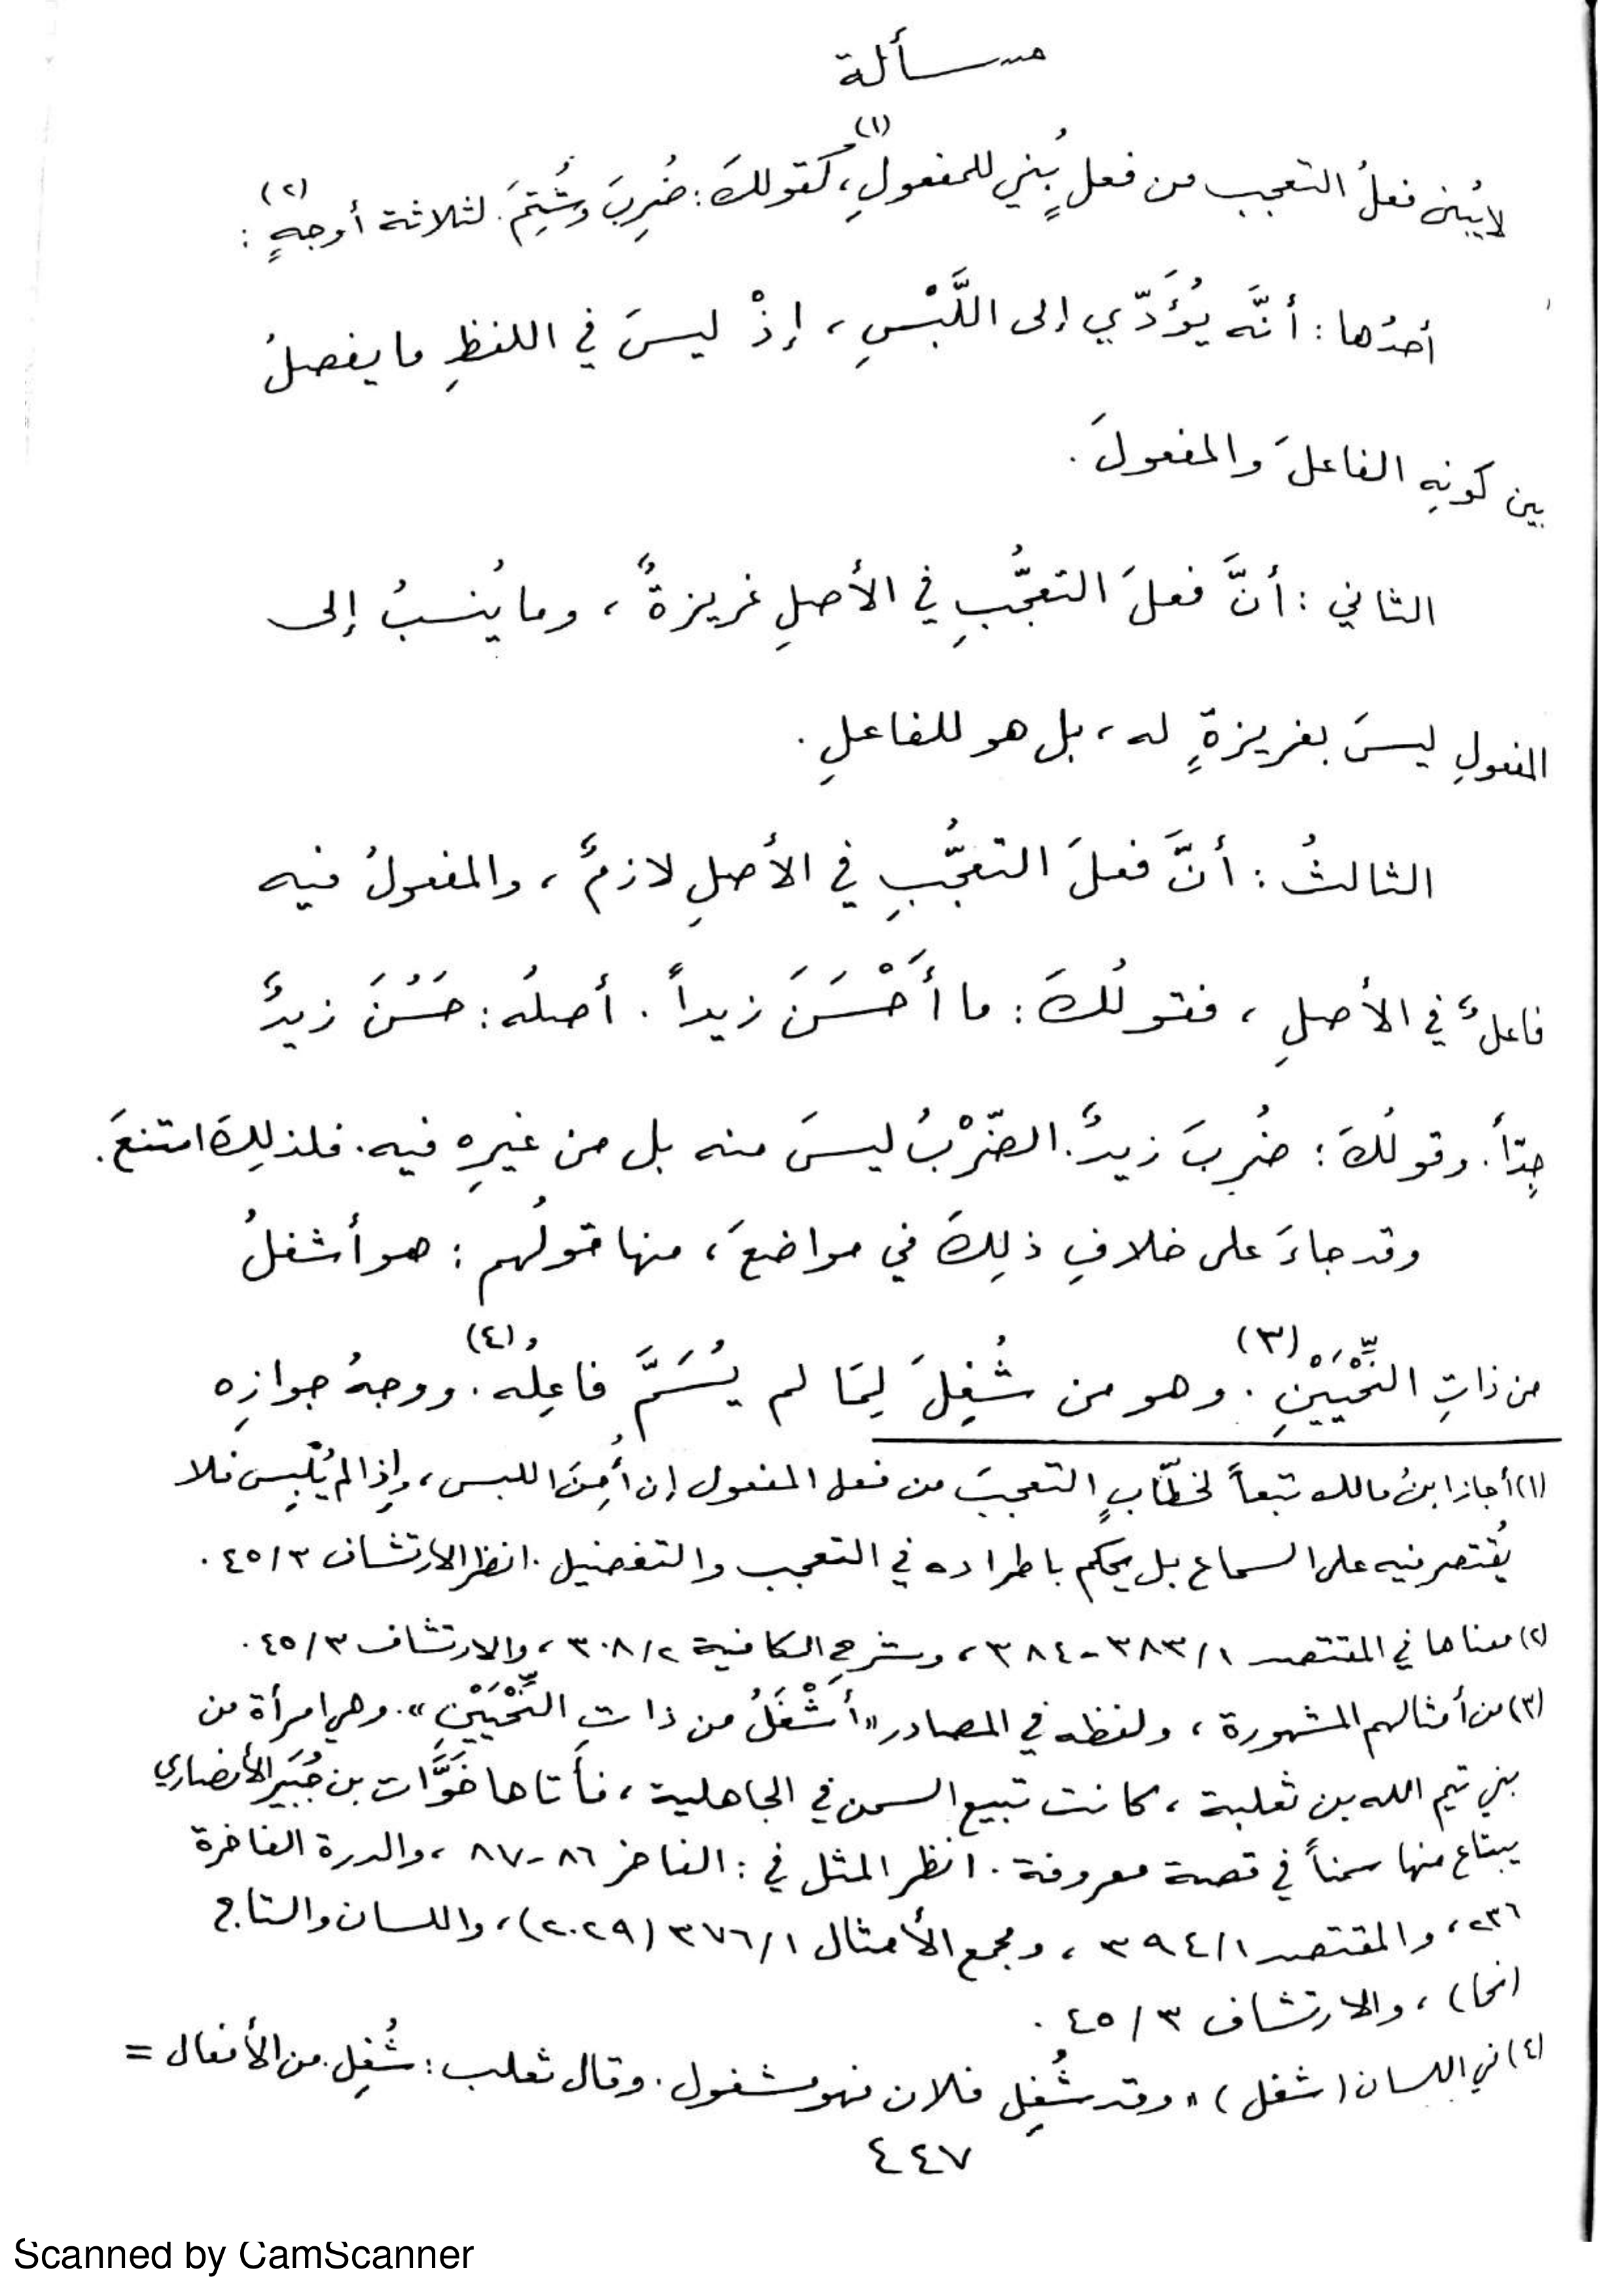 مسألة
لا يُبنى فعلُ التعجب من فعلٍ بُني للمفعولِ(١)، كقولكَ: ضُرِبَ وشُتِمَ. لثلاثة أوجهٍ(٢) :
أحدُها : أنَّه يُؤَدّي إلى اللَّبْسِ ، إذْ ليسَ في اللفظِ ما يفصلُ
بين كونِهِ الفاعلَ والمفعولَ .
الثاني : أنَّ فعلَ التعجُّبِ في الأصلِ غريزةٌ ، وما يُنسبُ إلى
المفعولِ ليسَ بغريزةٍ له ، بل هو للفاعلِ .
الثالثُ : أنَّ فعلَ التعجُّبِ في الأصلِ لازمٌ ، والمفعولُ فيه
فاعلٌ في الأصلِ ، فقولُكَ : ما أَحْسَنَ زيداً . أصلُه : حَسُنَ زيدٌ
جِدّاً . وقولُكَ : ضُرِبَ زيدٌ. الضّرْبُ ليسَ منه بل من غيرِه فيه. فلذلِكَ امتنعَ .
وقد جاءَ على خلافِ ذلِكَ في مواضعَ ، منها قولُهم : هو أشغلُ
من ذاتِ النِّحْيَيْنِ(٣) . وهو من شُغِلَ لِمَا لم يُسَمَّ فاعِلُه(٤) . ووجهُ جوازِه
(١) أجاز ابنُ مالك تبعاً لخطّابٍ التعجبَ من فعل المفعول إن أُمِنَ اللبس ، وإذا لم يُلْبِس فلا
يُقتصر فيه على السماع بل يحكم باطراده في التعجب والتفضيل . انظر الارتشاف ٤٥/٣ .
(٢) معناها في المقتصد ٣٨٣/١-٣٨٤ ، وشرح الكافية ٣٠٨/٢ ، والارتشاف ٤٥/٣ .
(٣) من أمثالهم المشهورة ، ولفظه في المصادر «أَشْغَلُ من ذاتِ النِّحْيَيْنِ» . وهي امرأة من
بني تيم الله بن ثعلبة ، كانت تبيع السمن في الجاهلية ، فأتاها خَوَّات بن جُبَير الأنصاري
يبتاع منها سمناً في قصة معروفة . انظر المثل في : الفاخر ٨٦-٨٧ ، والدرة الفاخرة
٢٣٦ ، والمقتصد ٣٩٤/١ ، ومجمع الأمثال ٣٧٦/١ (٢٠٢٩) ، واللسان والتاج
(نحا) ، والارتشاف ٤٥/٣ .
(٤) في اللسان (شغل) «وقد شُغِل فلان فهو مشغول . وقال ثعلب : شُغِل من الأفعال =
٤٤٧
Scanned by CamScanner